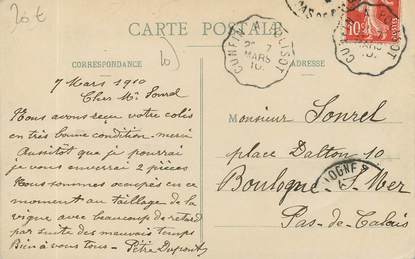 20€
CARTE POSTALE
CORRESPONDANCE
ADRESSE
CUNFIN A POLISOT
7
MARS
10
10
7 Mars 1910
Cher Mr Sonrel
Nous avons reçu votre colis
en très bonne condition merci
Aussitôt que je pourrai
je vous enverrai 2 pièces
Nous sommes occupés en ce
moment au taillage de la
vigne avec beaucoup de retard
par suite des mauvais temps
Bien à vous tous - Petre Dupont
Monsieur Sonrel
place Dalton 10
Boulogne s/Mer
Pas-de-Calais